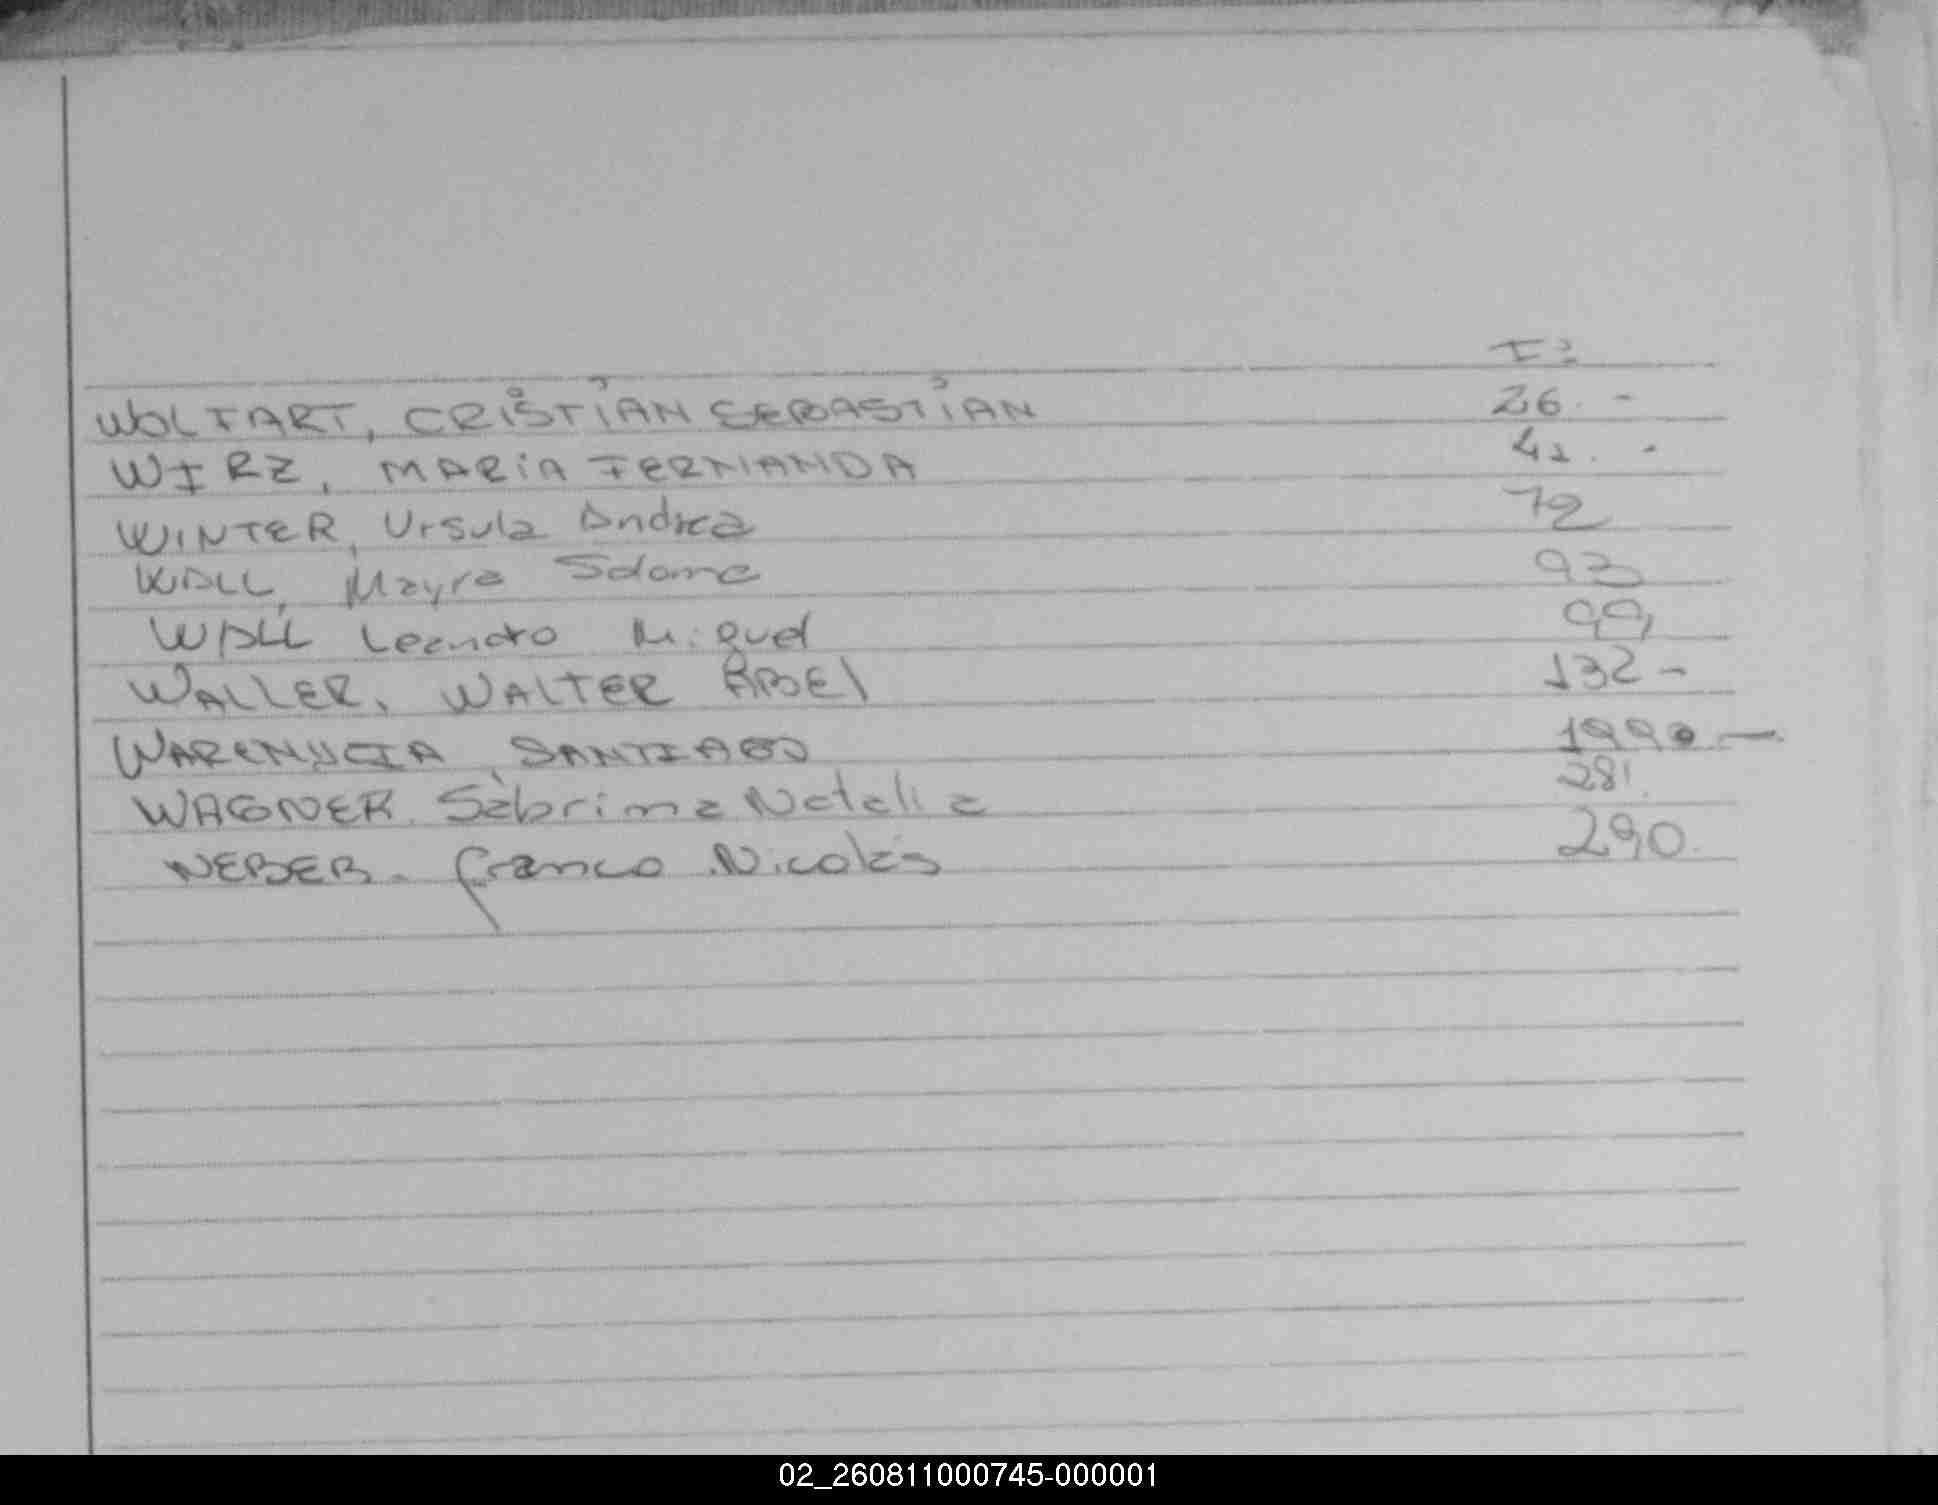 Fº
WOLFART, CRISTIAN SEBASTIAN 26. -
WIRZ, MARIA FERNANDA 42. -
WINTER, Ursula Andrea 72
WALL, Mayra Solome 93
WALL Leandro Miguel 99
WALLER, WALTER ABEL 132 -
SANTIAGO
WAGNER Sabrina Natalia 281.
WEBER - Franco Nicolás 290.
02_260811000745-000001